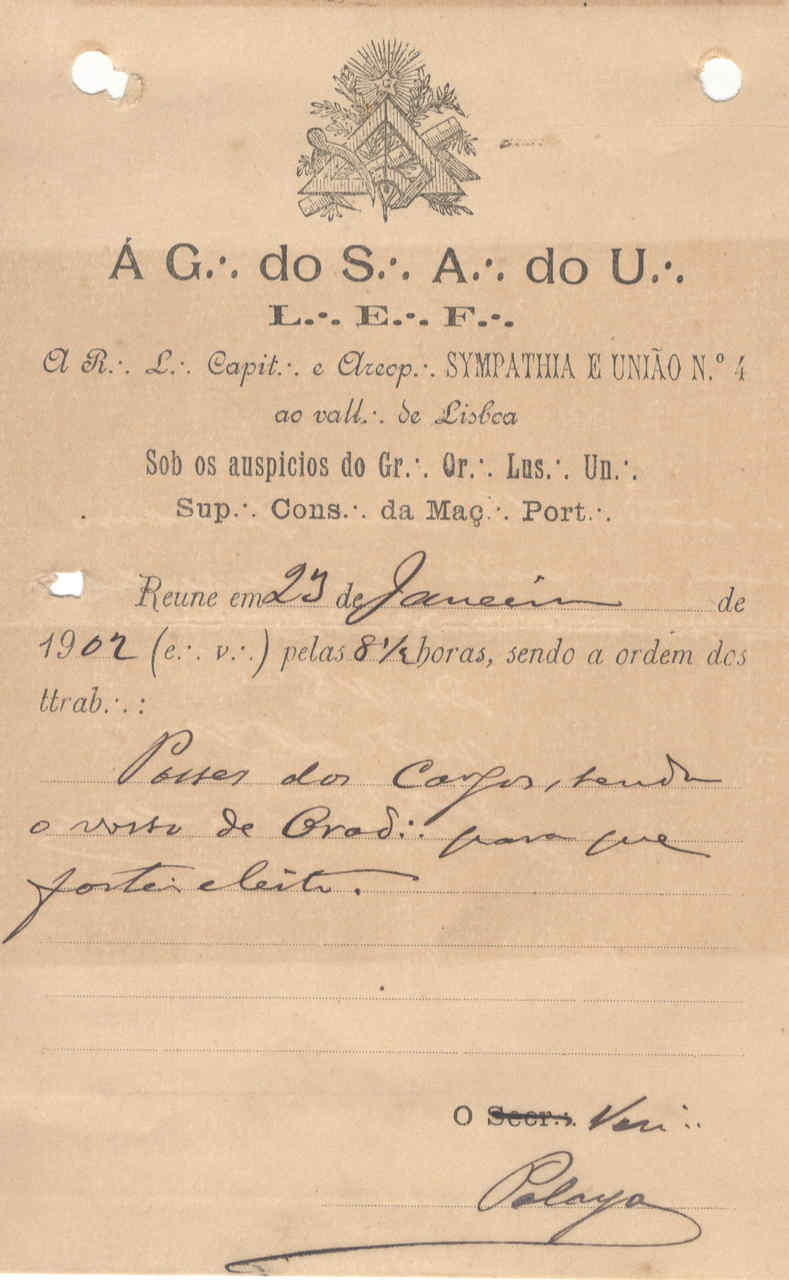 Á G.·. do S.·. A.·. do U.·.
L.·. E.·. F.·.
A R.·. L.·. Capit.·. e Areop.·. SYMPATHIA E UNIÃO N.º 4
ao vall.·. de Lisboa
Sob os auspicios do Gr.·. Or.·. Lus.·. Un.·.
Sup.·. Cons.·. da Maç.·. Port.·.
Reune em 23 de Janeiro de
1902 (e.·. v.·.) pelas 8 1/2 horas, sendo a ordem dos
ttrab.·. :
Posses dos Cargos, sendo
o vosso de Orad.·. para que
fostes eleito.
O Secr.·. Ven.·.
Pelayo